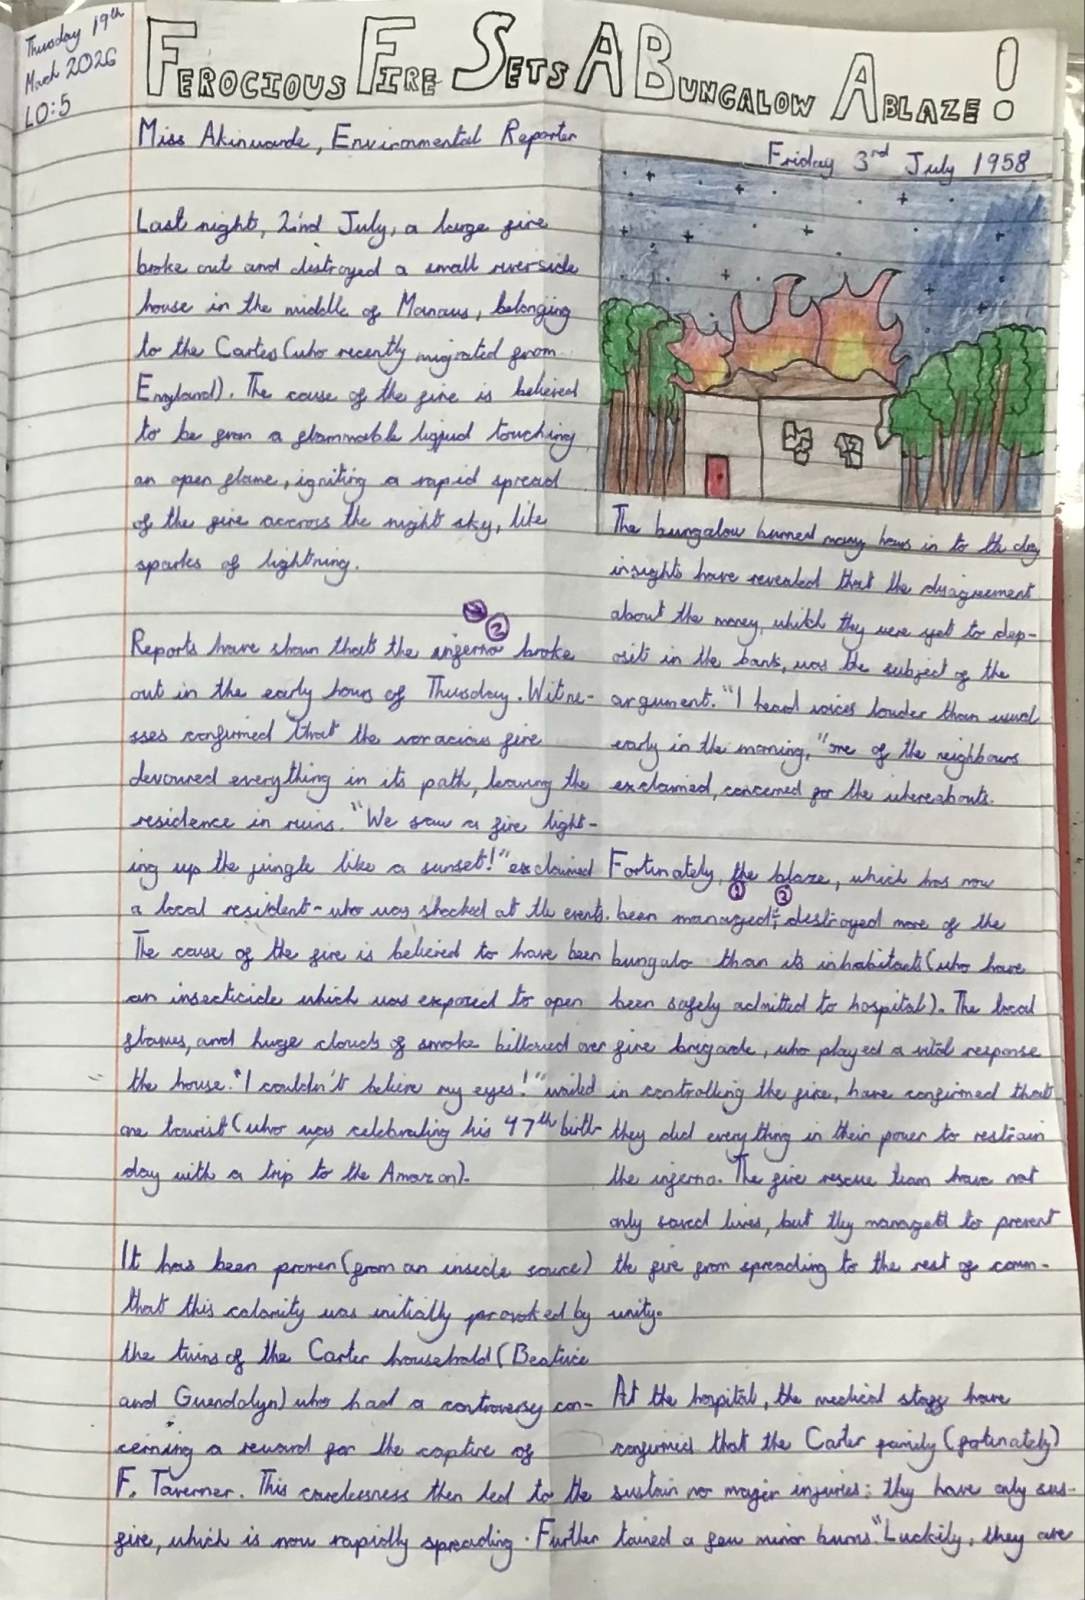 Thursday 19th
March 2026
LO:5
FEROCIOUS FIRE SETS A BUNGALOW ABLAZE!
Miss Akinwande, Environmental Reporter
Friday 3rd July 1958
Last night, 2nd July, a large fire
broke out and destroyed a small riverside
house in the middle of Manaus, belonging
to the Carters (who recently migrated from
England). The cause of the fire is believed
to be from a flammable liquid touching
an open flame, igniting a rapid spread
of the fire accross the night sky, like
sparks of lightning.
2
Reports have shown that the inferno broke
out in the early hours of Thursday. Witne-
sses confirmed that the voracious fire
devoured everything in its path, leaving the
residence in ruins. "We saw a fire light-
ing up the jungle like a sunset!" exclaimed
a local resident - who was shocked at the events.
The cause of the fire is believed to have been
an insecticide which was exposed to open
flames, and huge clouds of smoke billowed over
the house. "I couldn't believe my eyes!" wailed
one tourist (who was celebrating his 47th birth-
day with a trip to the Amazon).
It has been proven (from an inside source)
that this calamity was initially provoked by
the twins of the Carter household (Beatrice
and Guendolyn) who had a controversy con-
cerning a reward for the captive of
F. Taverner. This carelessness then led to the
fire, which is now rapidly spreading. Further
The bungalow burned many hours in to the day
insights have revealed that the disagreement
about the money, which they were yet to dep-
osit in the bank, was the subject of the
argument. "I heard voices louder than usual
early in the morning," one of the neighbours
exclaimed, concerned for the whereabouts.
Fortunately, the blaze, which has now
1 2
been managed; destroyed more of the
bungalo than its inhabitants (who have
been safely admitted to hospital). The local
fire brigarde, who played a vital response
in controlling the fire, have confirmed that
they did everything in their power to restrain
the inferno. The fire rescue team have not
only saved lives, but they managed to prevent
the fire from spreading to the rest of comm-
unity.
At the hospital, the medical staff have
confirmed that the Carter family (fortunately)
sustain no major injuries: they have only sus-
tained a few minor burns. "Luckily, they are